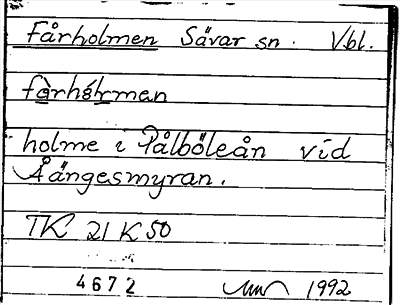 Fårholmen Sävar sn. Vbl.
fòrhólman
holme i Pålböleån vid
Åängesmyran.
TK 21 K 50
4672 1992